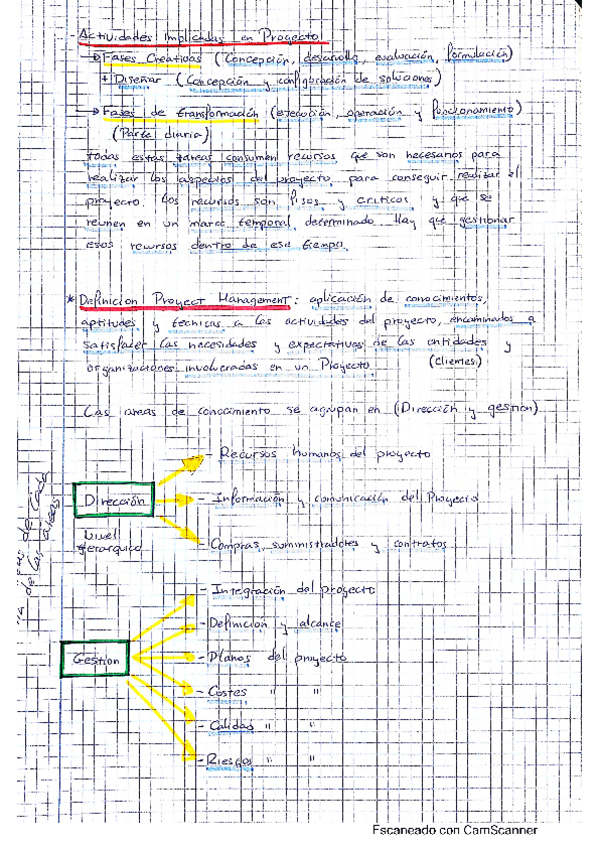 Actividades Implicadas en Proyecto
→ Fases Creativas (Concepción, desarrollo, evaluación, formulación)
+ Diseñar (Concepción y configuración de soluciones)
→ Fases de transformación (ejecución, operación y funcionamiento)
(Parte diaria)
todas estas tareas consumen recursos, que son necesarios para
realizar los aspectos del proyecto, para conseguir realizar el
proyecto. Los recursos son fisos, y criticos, y que se
reunen en un marco temporal determinado. Hay que gestionar
esos recursos dentro de ese tiempo.
* Definicion Proyect Management: aplicación de conocimientos,
aptitudes y técnicas a las actividades del proyecto, encaminados a
satisfacer las necesidades y expectativas de las entidades y
organizaciones involucradas en un Proyecto. (Clientes)
Las areas de conocimiento se agrupan en (Dirección y gestion)
- Recursos humanos del proyecto
Dirección
- Información y comunicación del Proyecto
Nivel
gerarquico
- Compras, suministradores y contratos
de cada
de las areas
- Integración del proyecto
- Definición y alcance
Gestion
- Planos del proyecto
- Costes " "
- Calidad " "
- Riesgos " "
Escaneado con CamScanner